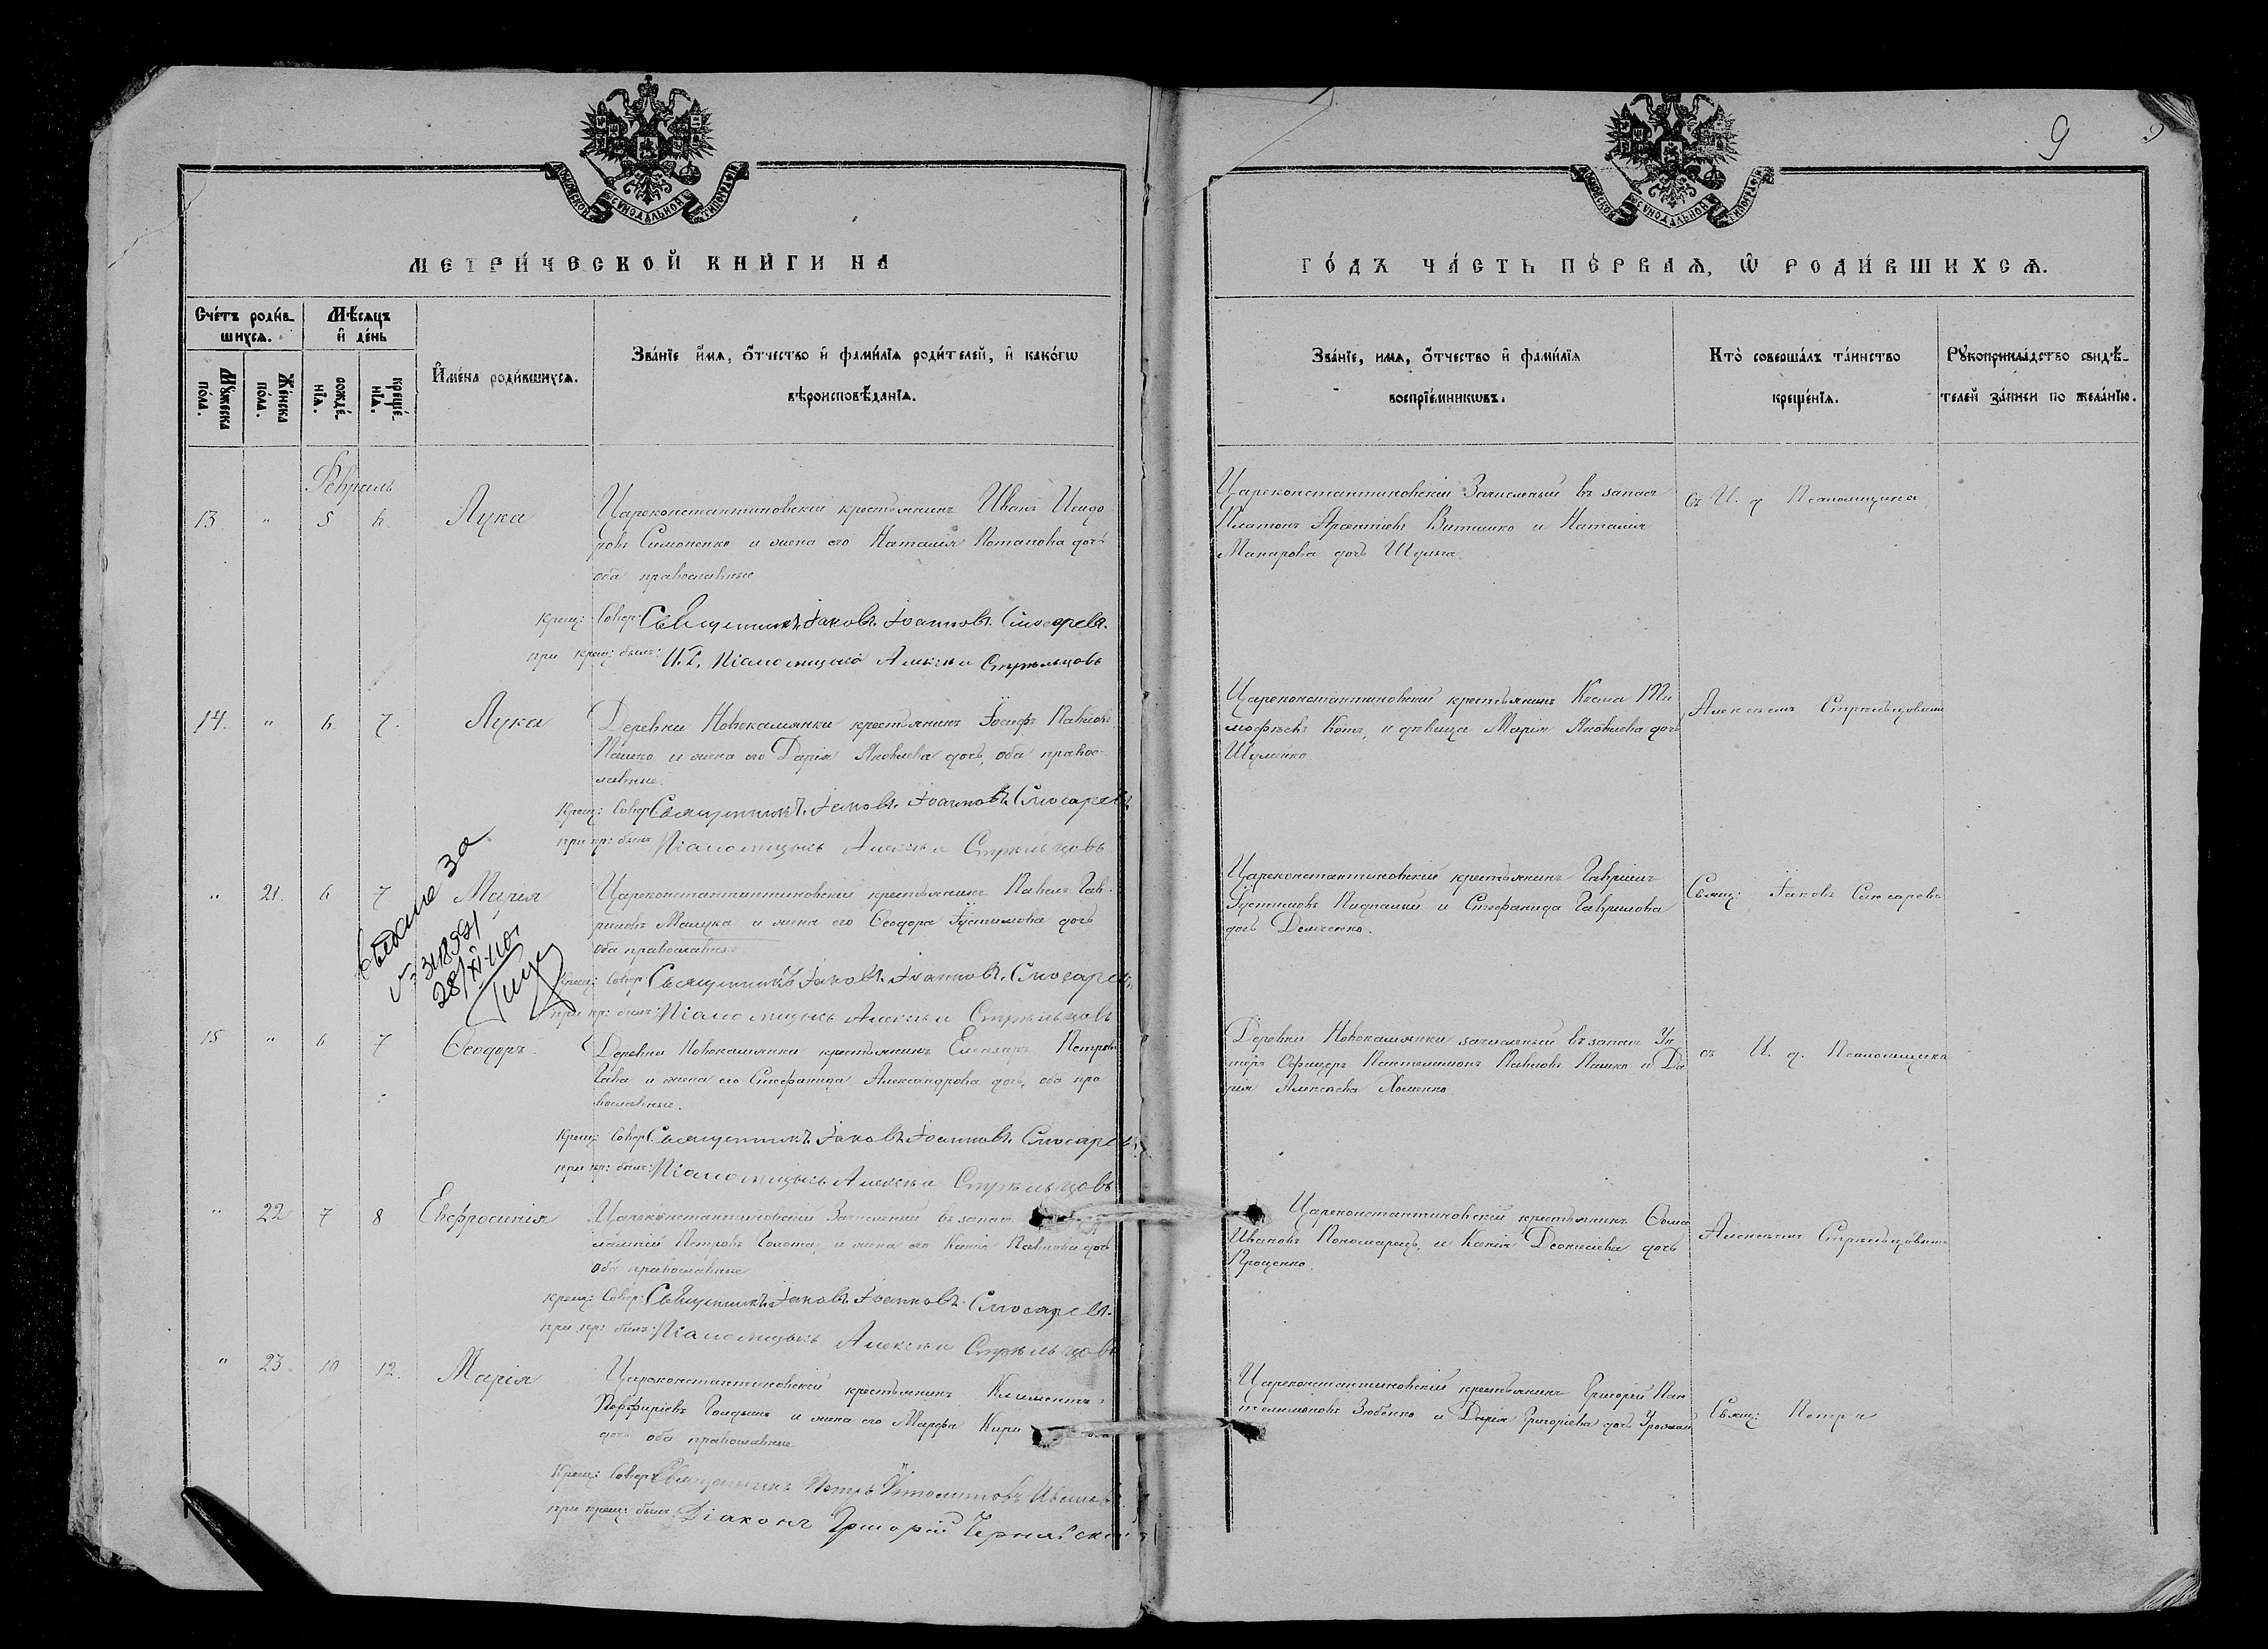 9
МОСКОВСКОЙ СѴНОДАЛЬНОЙ ТИПОГРАФІИ
МОСКОВСКОЙ СѴНОДАЛЬНОЙ ТИПОГРАФІИ
МЕТРИ́ЧЕСКОЙ КНИ́ГИ НА
ГО́ДЪ ЧА́СТЬ ПЕ́РВАѦ, Ѽ РОДИ́ВШИХСѦ.
Сче́тъ роди́в-
шихсѧ.
Мꙋ́жеска по́ла.
Же́нска по́ла.
Мѣ́сѧцъ
и҆ де́нь
рожде́нїѧ.
креще́нїѧ.
И҆мена̀ роди́вшихсѧ.
Зва́нїе и҆́мѧ, о҆́тчество и҆ фами́лїѧ роди́телей, и҆ како́гѡ
вѣроисповѣ́данїѧ.
Зва́нїе, имѧ, о҆́тчество и҆ фами́лїѧ
воспрїе́мникѡвъ.
Кто̀ соверша́лъ та́инство
креще́нїѧ.
Рꙋкоприкла́дство свидѣ́-
телей за́писи по жела́нїю.
Февраль
13. " 5 6. Лука
Цареконстантиновскій крестьянинъ Иванъ Исидо-
ровъ Симоненко и жена его Наталія Потапова дочь
оба православные
Крещ: Совер: Священникъ Іаковъ Іоанновъ Слюсаревъ.
при крещ: былъ: И. д. Псаломщика Алексѣй Стрѣльцовъ
Цареконстантиновскій Зачисленный въ запасъ
Платонъ Витишко и Наталія
Макарова дочь Шульга
съ И. д. Псаломщика
14. " 6 7. Лука
Деревни Новокамянки крестьянинъ Іосифъ Павловъ
Пашко и жена его Дарія Яковлева дочь, оба правос-
лавные.
Крещ: Совер: Священникъ Іаковъ Іоанновъ Слюсаревъ
при кр: былъ Псаломщикъ Алексѣй Стрѣльцовъ
Цареконстантиновскій крестьянинъ Косма Ти-
мофѣевъ Котъ, и дѣвица Марія Яковлева дочь
Шулейко
Алексѣемъ Стрѣльцовымъ
" 21. 6 7 Марія
Цареконстантинтиновскій крестьянинъ Павелъ Гав-
риловъ Мащка и жена его Ѳеодора Іустинова дочь
оба православные.
Крещ: Совер: Священникъ Іаковъ Іоанновъ Слюсаревъ
при кр: былъ: Псаломщикъ Алексѣй Стрѣльцовъ
Цареконстантиновскій крестьянинъ Гавріилъ
Іустиновъ и Стефанида Гаврилова
дочь Демченко.
Свящ: Іаковъ Слюсаревъ
за
28/XI
15 " 6 7 Ѳеодоръ.
Деревни Новокамянки крестьянинъ Елеазаръ Петровъ
Гава и жена его Стефанида Александрова дочь, оба пра-
вославные.
Крещ: Совер: Священникъ Іаковъ Іоанновъ Слюсаревъ
при кр: былъ: Псаломщикъ Алексѣй Стрѣльцовъ
Деревни Новокамянки зачисленный въ запасъ Ун-
теръ Офицеръ Пантелеимонъ Павловъ Пашко и Да-
рія Алексѣева Хоменко
съ И. д. Псаломщика
" 22 7 8 Евфросинія
Цареконстантиновскій Зачисленный въ запасъ
Петровъ Голота, и жена его Ксенія Павлова дочь
оба православные
крещ: Совер: Священникъ Іаковъ Іоанновъ Слюсаревъ.
при кр: былъ: Псаломщикъ Алексѣй Стрѣльцовъ
Цареконстантиновскій крестьянинъ Ѳома
Ивановъ Пономарецъ, и Ксенія Деонисіева дочь
Проценко.
Алексѣемъ Стрѣльцовымъ
" 23. 10 12. Марія
Цареконстантиновскій крестьянинъ Климентъ
Порфиріевъ и жена его Марфа
дочь оба православные
Крещ: Совер: Священникъ Петръ
при крещ: былъ: Діаконъ Григорій Чернявскій
Цареконстантиновскій крестьянинъ Григорій Пан-
телеимоновъ Зюбенко и Дарія Григоріева дочь
Свящ: Петръ